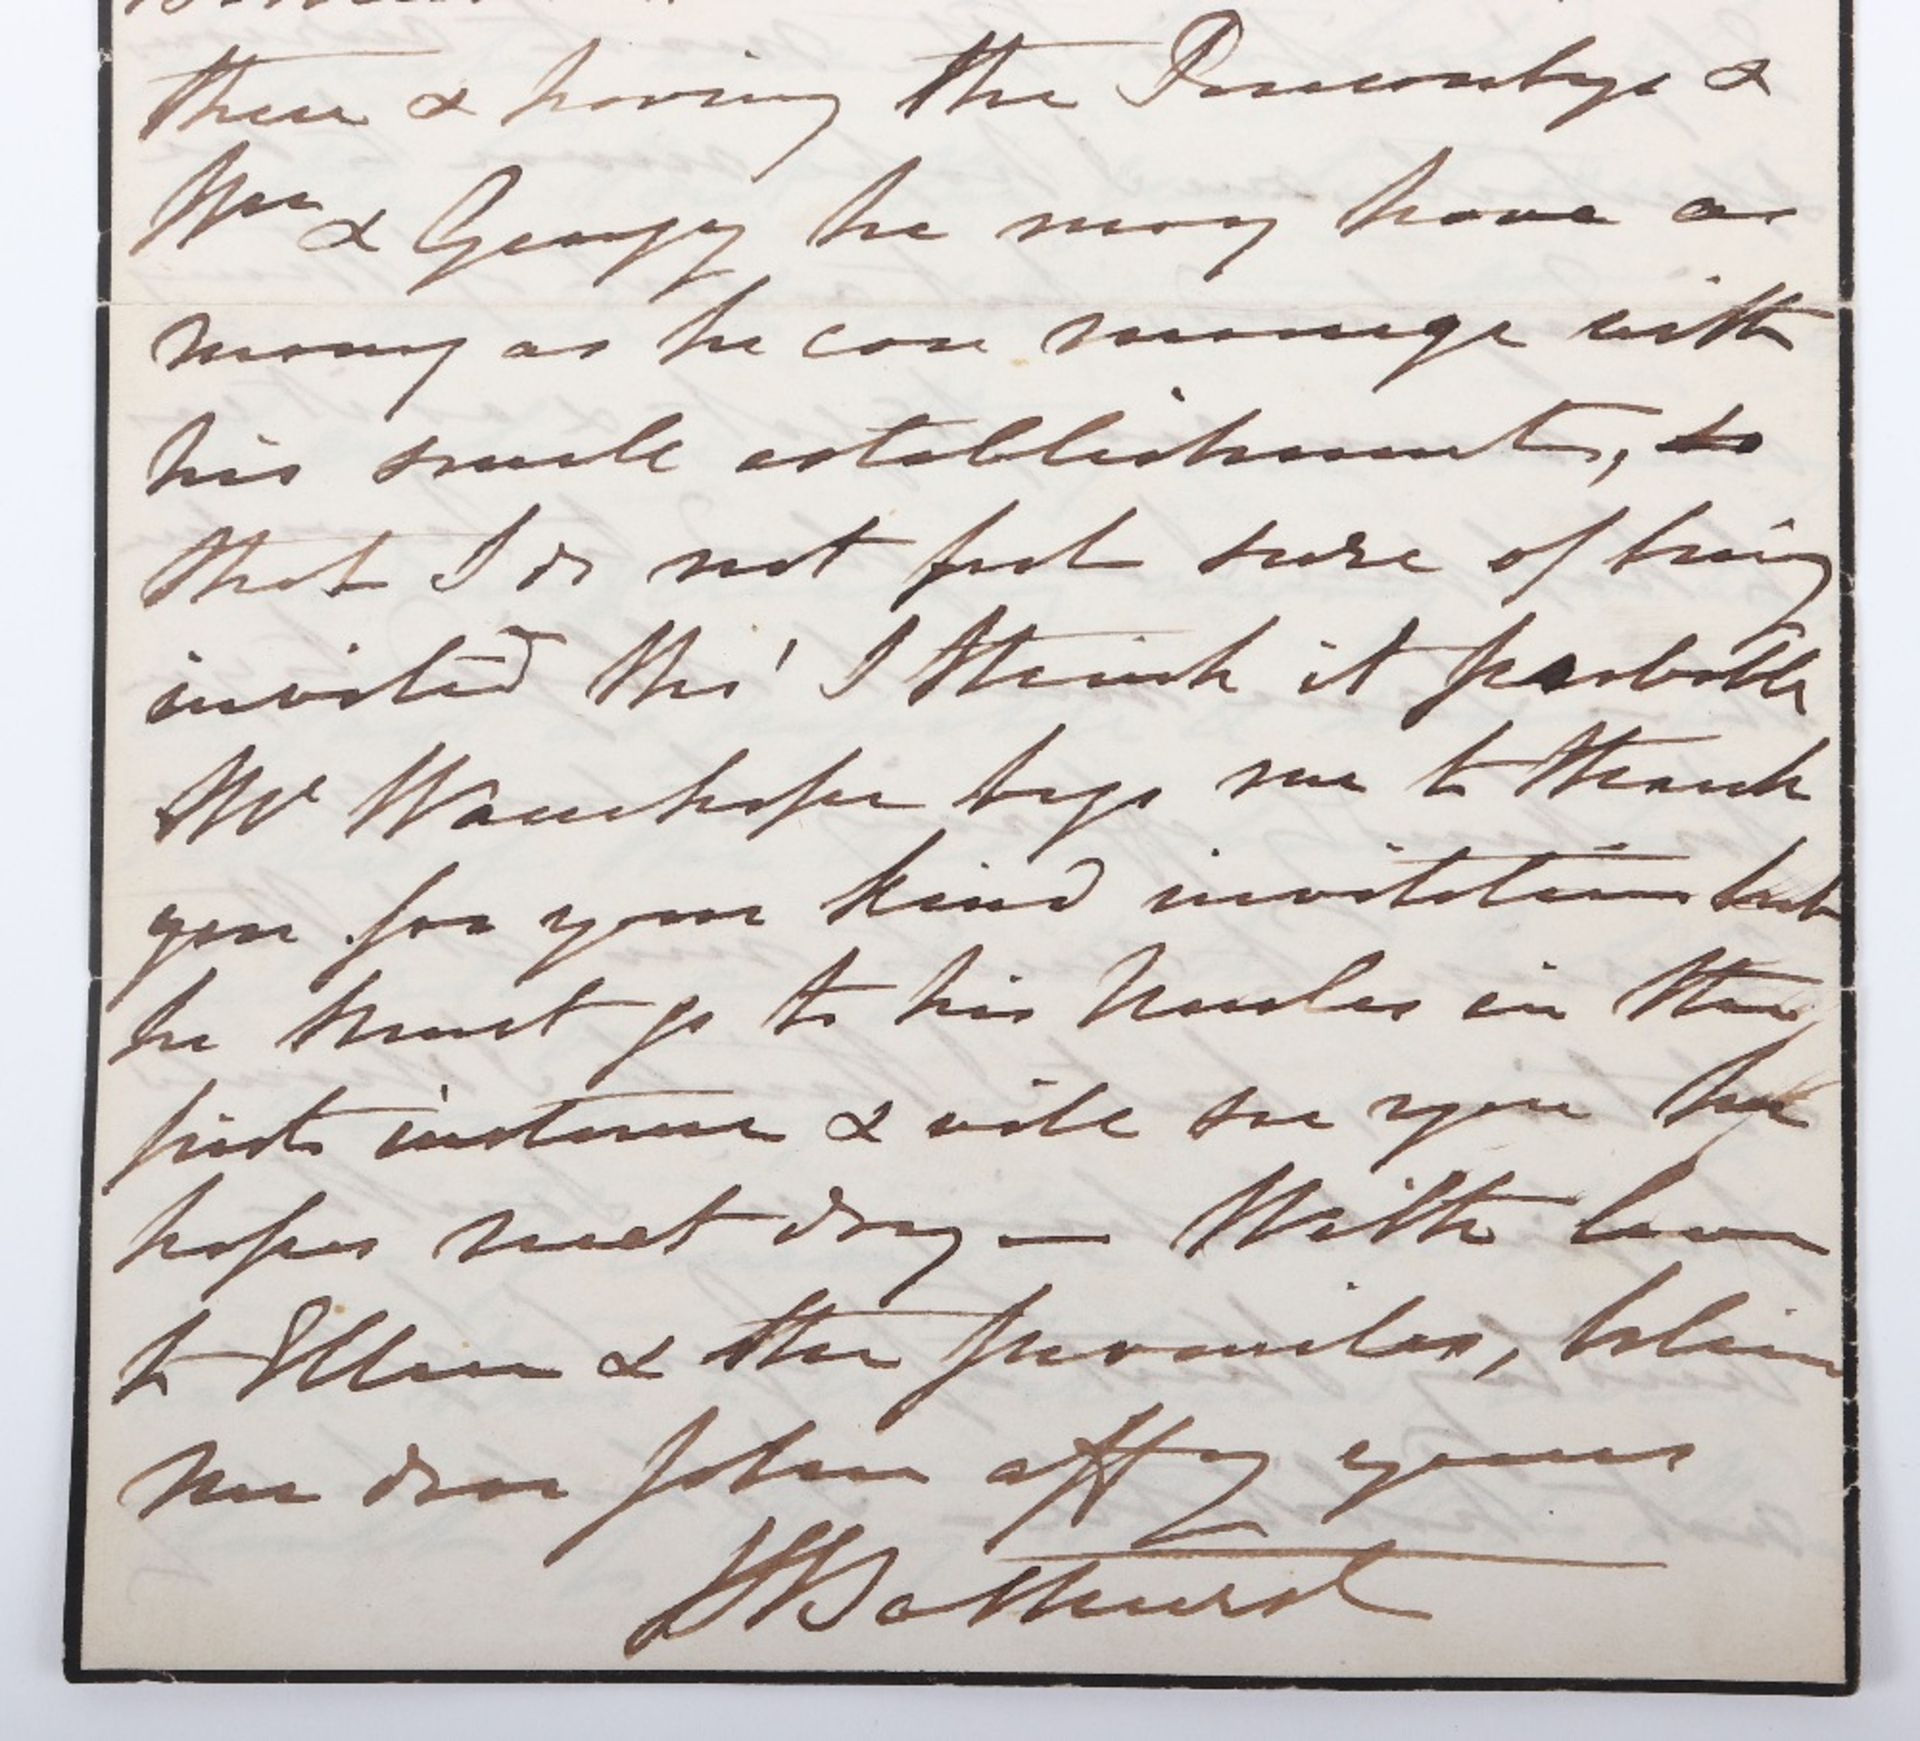 there & having the Ponsonbys &
Wm & Georgy he may have as
many as he can manage with
his small establishment, so
that I do not feel sure of being
invited tho' I think it probable
Mr Wauchope begs me to thank
you for your kind invitation but
he must go to his Uncles in the
first instance & will see you he
hopes next day — With love
to Ellen & the juveniles, believe
me dear John affy yours
Bathurst